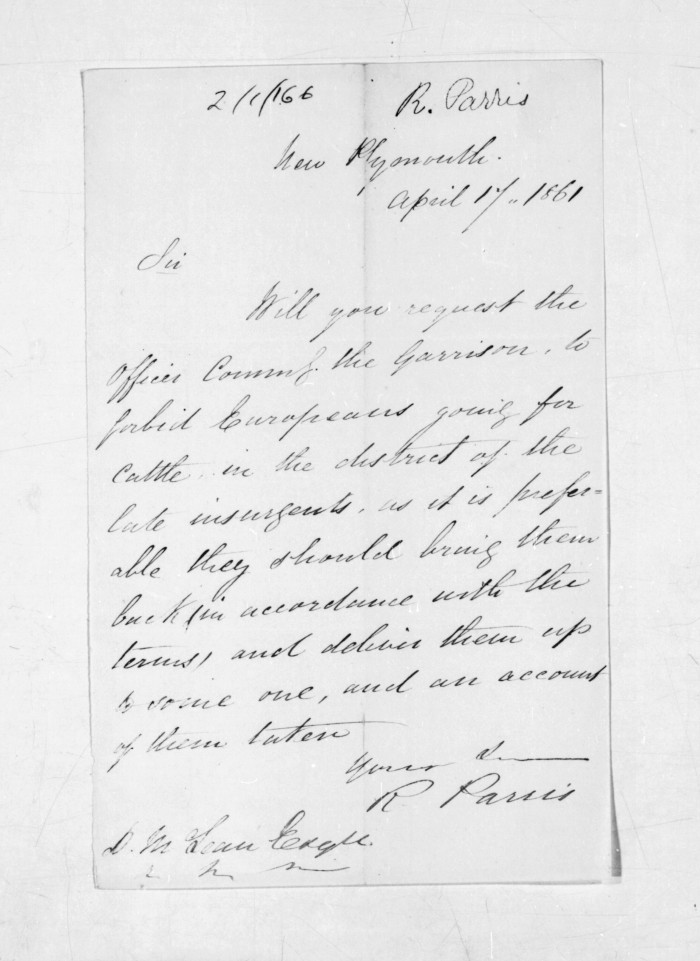 2/1/166 R. Parris
New Plymouth.
April 17,, 1861
Sir
Will you request the
Officer Commg. the Garrison, to
forbid Europeans going for
Cattle in the district of the
late insurgents, as it is prefer=
able they should bring them
back (in accordance with the
terms) and deliver them up
to some one, and an account
of them taken
Yours
R Parris
D. McLean Esqre.